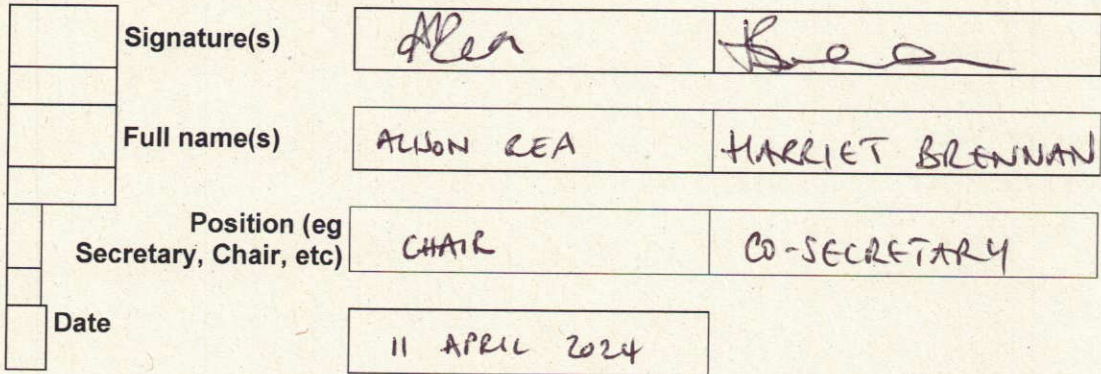 Signature(s) ARea
Full name(s) ALISON REA HARRIET BRENNAN
Position (eg
Secretary, Chair, etc) CHAIR CO-SECRETARY
Date
11 APRIL 2024